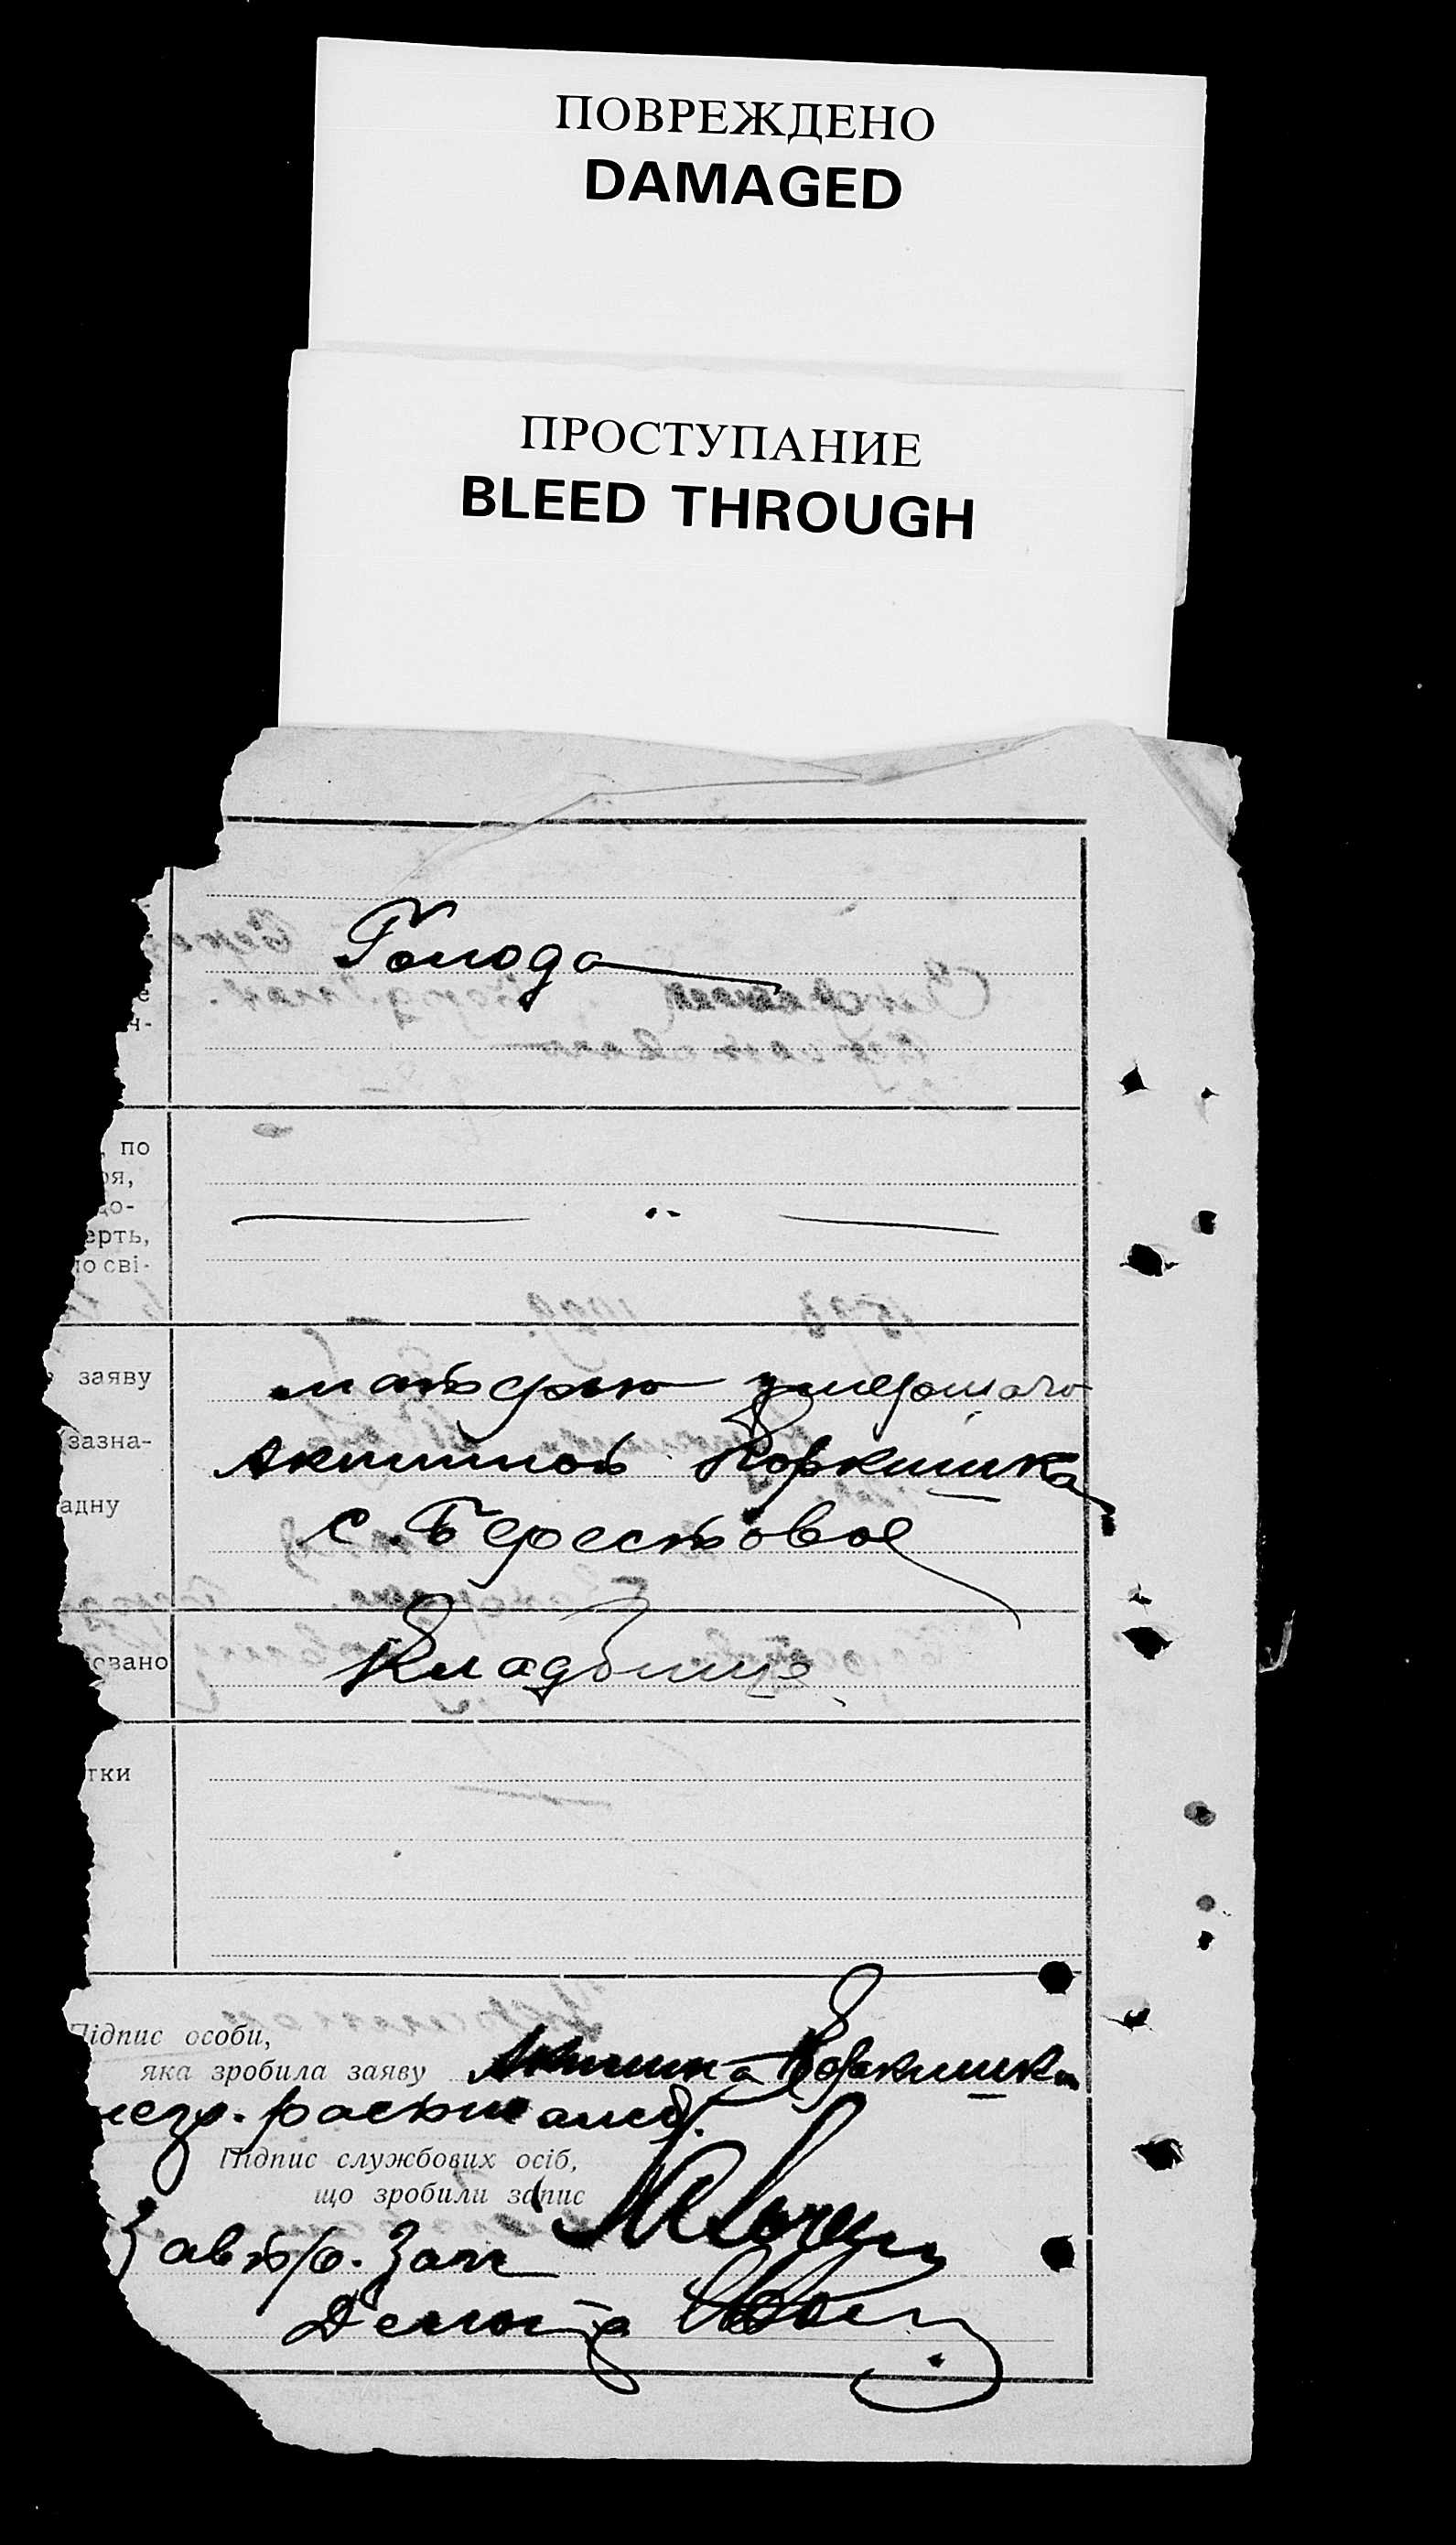 ПОВРЕЖДЕНО
DAMAGED
ПРОСТУПАНИЕ
BLEED THROUGH
Голода
е
ч-
, по
ря,
до-
ерть,
по сві-
заяву
матерью умершаго
зазна-
Акилиной Коркишка
адну
с. Берестовое
овано
Кладбище
тки
Підпис особи,
яка зробила заяву Акилина Коркишка
негр. расписалась
Підпис службових осіб,
що зробили запис
Зап